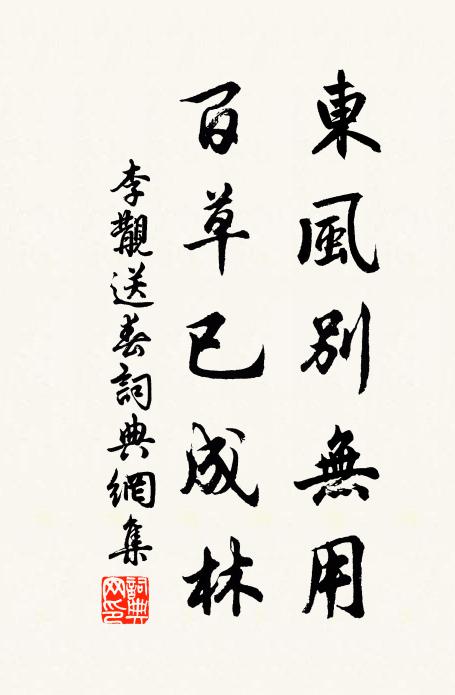 東風別無用
百草已成林
李覯送春詞典網集
詞典
网印